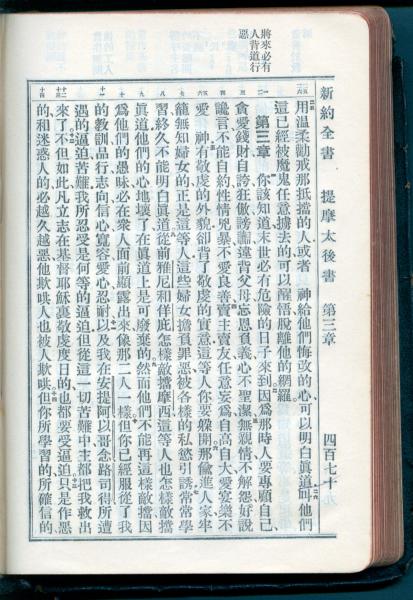 新約全書 提摩太後書 第三章 四百七十九
將來必有
人背道行
惡
用温柔勸戒那抵擋的人或者 神給他們悔改的心可以明白眞道叫他們
這已經被魔鬼任意擄去的可以醒悟脫離他的網羅
第三章 你該知道末世必有危險的日子來到因爲那時人要專顧自己、
貪愛錢財自誇狂傲謗讟違背父母忘恩負義心不聖潔無親情不解怨好說
讒言不能自約性情兇暴不愛良善賣主賣友任意妄爲自高自大愛宴樂不
愛 神有敬虔的外貌卻背了敬虔的實意這等人你要躱開那偷進人家牢
籠無知婦女的正是這等人這些婦女擔負罪惡被各樣的私慾引誘常常學
習終久不能明白眞道從前雅尼和佯庇怎樣敵擋摩西這等人也怎樣敵擋
眞道他們的心地壞了在眞道上是可廢棄的然而他們不能再這樣敵擋因
爲他們的愚昧必在衆人面前顯露出來像那二人一樣但你已經服從了我
的教訓品行志向信心寬容愛心忍耐以及我在安提阿以哥念路司得所遭
遇的逼迫苦難我所忍受是何等的逼迫但從這一切苦難中主都把我救出
來了不但如此凡立志在基督耶穌裏敬虔度日的也都要受逼迫只是作惡
的和迷惑人的必越久越惡他欺哄人也被人欺哄但你所學習的所確信的